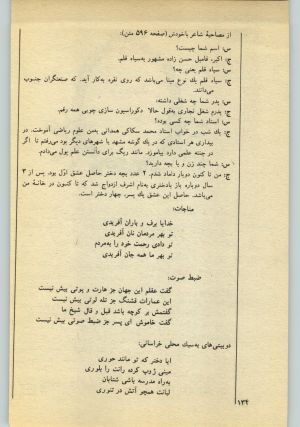 از مصاحبهٔ شاعر باخودش (صفحه ۵۹۶ متن):
س: اسم شما چیست؟
ج: اکبر، فامیل حسن زاده مشهور به‌سیاه قلم.
س: سیاه قلم یعنی چه؟
ج: سیاه قلم یك نوع مینا می‌باشد که روی نقره به‌کار آید. که صنعتگران جنوب
می‌دانند.
س: پدر شما چه شغلی داشته:
ج: پدرم شغل نجاری به‌قول حالا دکوراسیون سازی چوبی همه رقم.
س: استاد شما چه کسی بوده؟
ج: یك شب در خواب استاد محمد سکاکی همدانی بمن علوم ریاضی آموخت. در
بیداری هر استادی که در یك گوشه مشهد با شهرهای دیگر بود می‌رفتم تا اگر
در چنته علمی دارد بیاموزد مانند ریگ برای دانستن علم پول می‌دادم.
س: شما چند زن و یا بچه دارید؟
ج: من تا کنون دوبار داماد شدم. ۴ عدد بچه دختر حاصل عشق اوّل بود. پس از ۳
سال دوباره باز بادختری به‌نام اشرف ازدواج شد که تا کنون در خانهٔ من
می‌باشد. حاصل این عشق یك پسر، چهار دختر است.
مناجات:
خدایا برف و باران آفریدی
تو بهر مردمان نان آفریدی
تو دادی رحمت خود را به‌مردم
تو بهر ما همه جان آفریدی
ضبط صوت:
گفت عقلم این جهان جز هارت و پوتی بیش نیست
این عمارات قشنگ جز تله لوتی بیش نیست
گفتمش بر کوچه باشد قیل و قال شیخ ما
گفت خاموش ای پسر جز ضبط صوتی بیش نیست
دوبیتی‌های به‌سبك محلی خراسانی:
ایا دختر که تو مانند حوری
مینی ژوپ کرده رانت را بلوری
به‌راه مدرسه باشی شتابان
لبانت همچو آتش در تنوری
۱۳۴